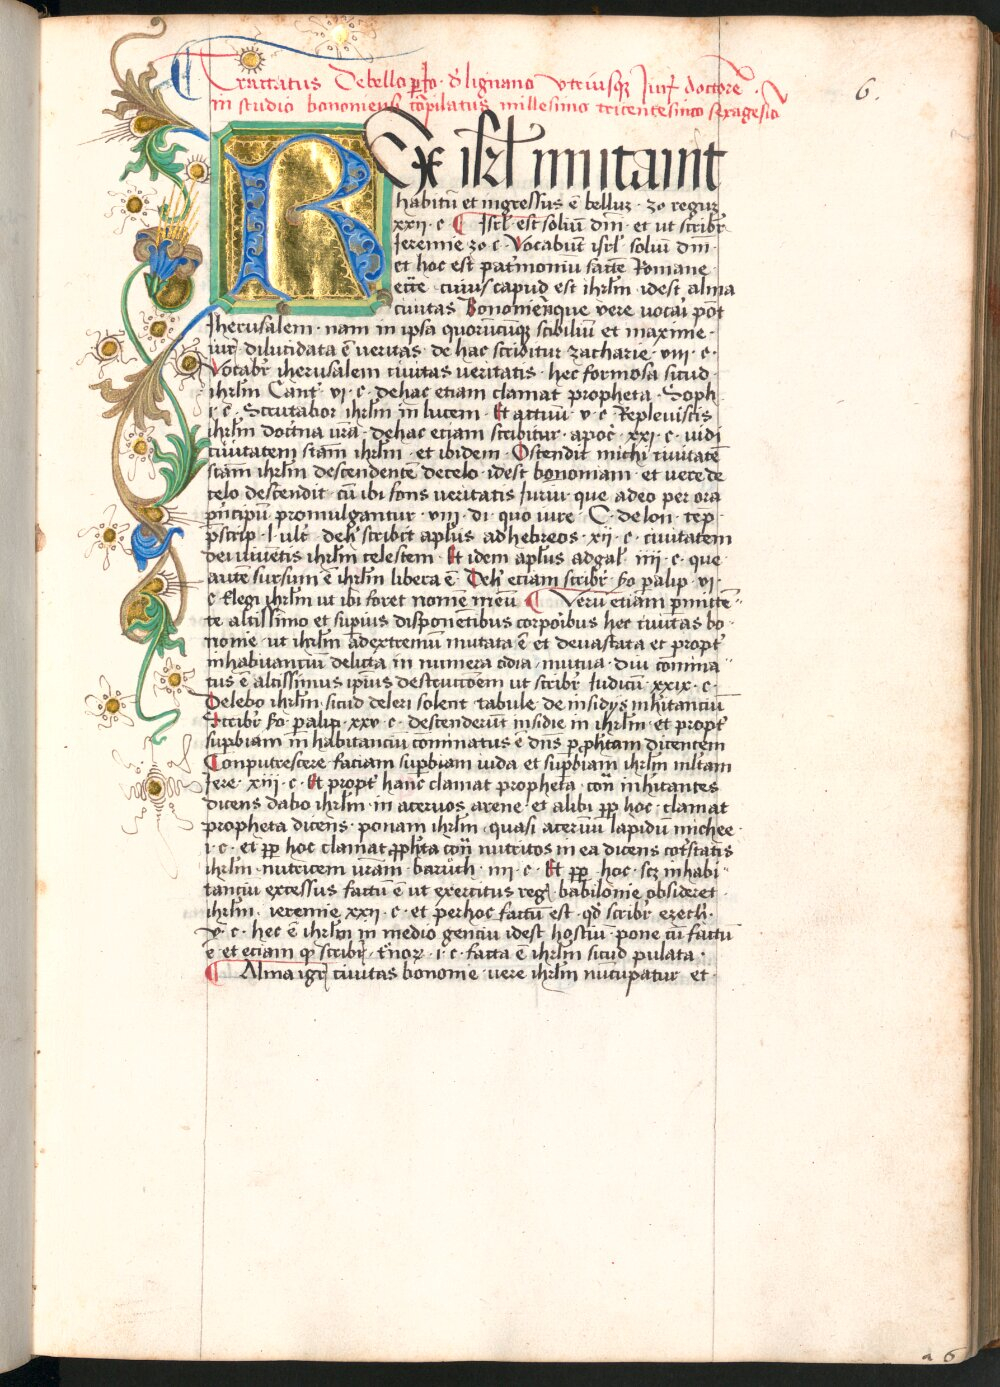 Tractatus De bello p Jo. d lignano vtriusqȝ Jur doctorē.
in studio bononiensi cōpilatus millesimo tricentesimo sexagesio
6.
REx isrl mutauit
habitū et ingressus ē belluȝ · 3o reguȝ
xxii · c ¶ Isrl est solium dnī · et ut scribr
Jeremie 3o c · Vocabūt isrl solium dnī ·
et hoc est patrīmoniū sācte Romane
eccē · cuius capud est ihrlm idest alma
ciuitas Bononiensque vere uocari pōt
Jherusalem · nam in ipsa quorūcūqȝ scibiliū et maxime ·
iuris dilucidata ē veritas · de hac scribitur zacharie · viii · c ·
Vocabr iherusalem ciuitas veritatis · hec formosa sicud ·
ihrlm Cant · vi · c · de hac etiam clamat propheta · Soph
i · c · Scrutabor ihrlm in lucem · Et actuū · v · c Repleuistis
ihrlm doctrina urā · de hac etiam scribitur · apoc · xxi · c · uidi
ciuitatem scām ihrlm · et ibidem · Ostendit michi ciuitatē
scām ihrlm descendentē de celo · idest bononiam · et vere de
celo descendit · cū ibi fons veritatis Juriū · que adeo per ora
principū promulgantur · viii · di · quo iure · C · de lon · tep
pscrip · l · ult · de h scribit apl̄us ad hebreos · xii · c · ciuitatem
dei uiuētis ihrlm celestem · Et idem apl̄us ad gal · iiii · c · que
autē sursum ē ihrlm libera ē · De h etiam scribr · 2o palip · vi ·
c · Elegi ihrlm ut ibi foret nomē meū ¶ Verū etiam pmitten
te altissimo et supius disponentibus corporibus hec ciuitas bo
nonie · ut ihrlm ad extremū mutata ē et deuastata et propt
inhabitanciū delicta in numera odia · mutua · diu comina
tus ē altissimus ipius destructionem ut scribr Judicū · xxix · c ·
Delebo ihrlm · sicud deleri solent tabule de insidys inhitanciū
Scribr 2o palip · xxv · c · descenderunt insidie in ihrlm · et propt
supbiam in habitanciū cominatus ē dn̄s p pphtam dicentem
Conputrescere faciam supbiam iuda et supbiam ihrlm mltam
Jere · xiii · c · Et propt hanc clamat propheta · contra inhitantes
dicens dabo ihrlm · in aceruos arene · et alibi pp hoc · clamat
propheta dicens · ponam ihrlm · quasi aceruū lapidū michee
i · c · et pp hoc clamat pphta contra nutritos in ea dicens cotstatis
ihrlm · nutricem urām · baruch · iiii · c · Et pp hoc · scȝ inhabi
tanciū excessus factū ē ut exercitus reg babilonie obsideret ·
ihrlm · ieremie xxii · c · et per hoc factū est · qd scribr ezech ·
v · c · hec ē ihrlm in medio genciū idest hostiū · pone cū factū
ē et eciam q scribr · trenoȝ · i · c · facta ē ihrlm sicud puluta ·
¶ Alma igr ciuitas bononie · vere ihrlm nūcupatur et ·
a 6